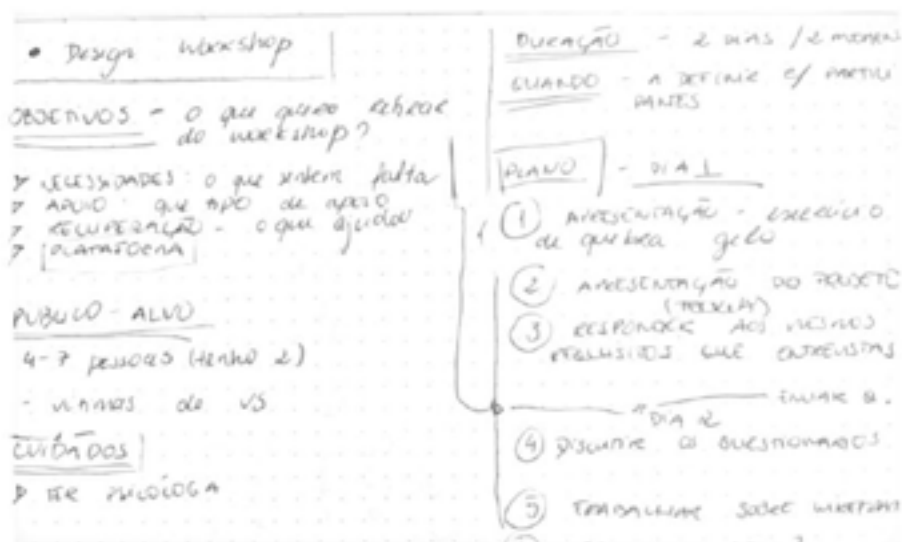 • Design Workshop
OBJETIVOS - o que quero retirar
do workshop?
NECESSIDADES: o que sentem falta
APOIO: que tipo de apoio
RECUPERAÇÃO - o que ajudou
PLATAFORMA
PÚBLICO-ALVO
4-7 pessoas (tenho 2)
- vítimas de VS
CUIDADOS
TER PSICÓLOGA
DURAÇÃO - 2 DIAS / 2
QUANDO - A DEFINIR C/ PARTICI
PANTES
PLANO - DIA 1
1 APRESENTAÇÃO - EXERCÍCIO
de quebra gelo
2 APRESENTAÇÃO DO PROJETO
3 RESPONDER AOS MESMOS
QUE ENTREVISTAS
ENVIAR Q.
DIA 2
4 DISCUTIR OS QUESTIONÁRIOS
5 TRABALHAR SOBRE